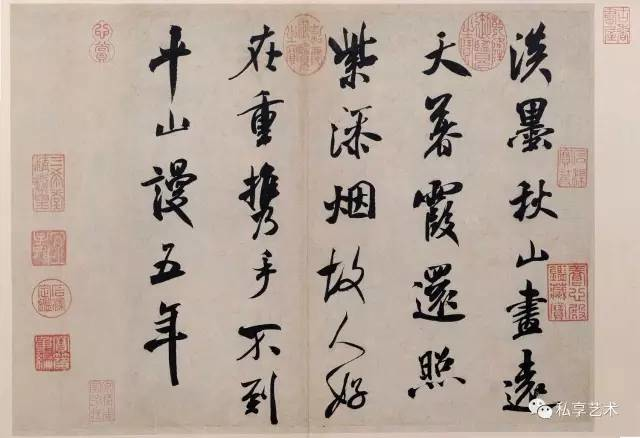 淡墨秋山畫遠
天暮霞還照
紫添烟故人好
在重携手不到
平山謾五年
私享艺术